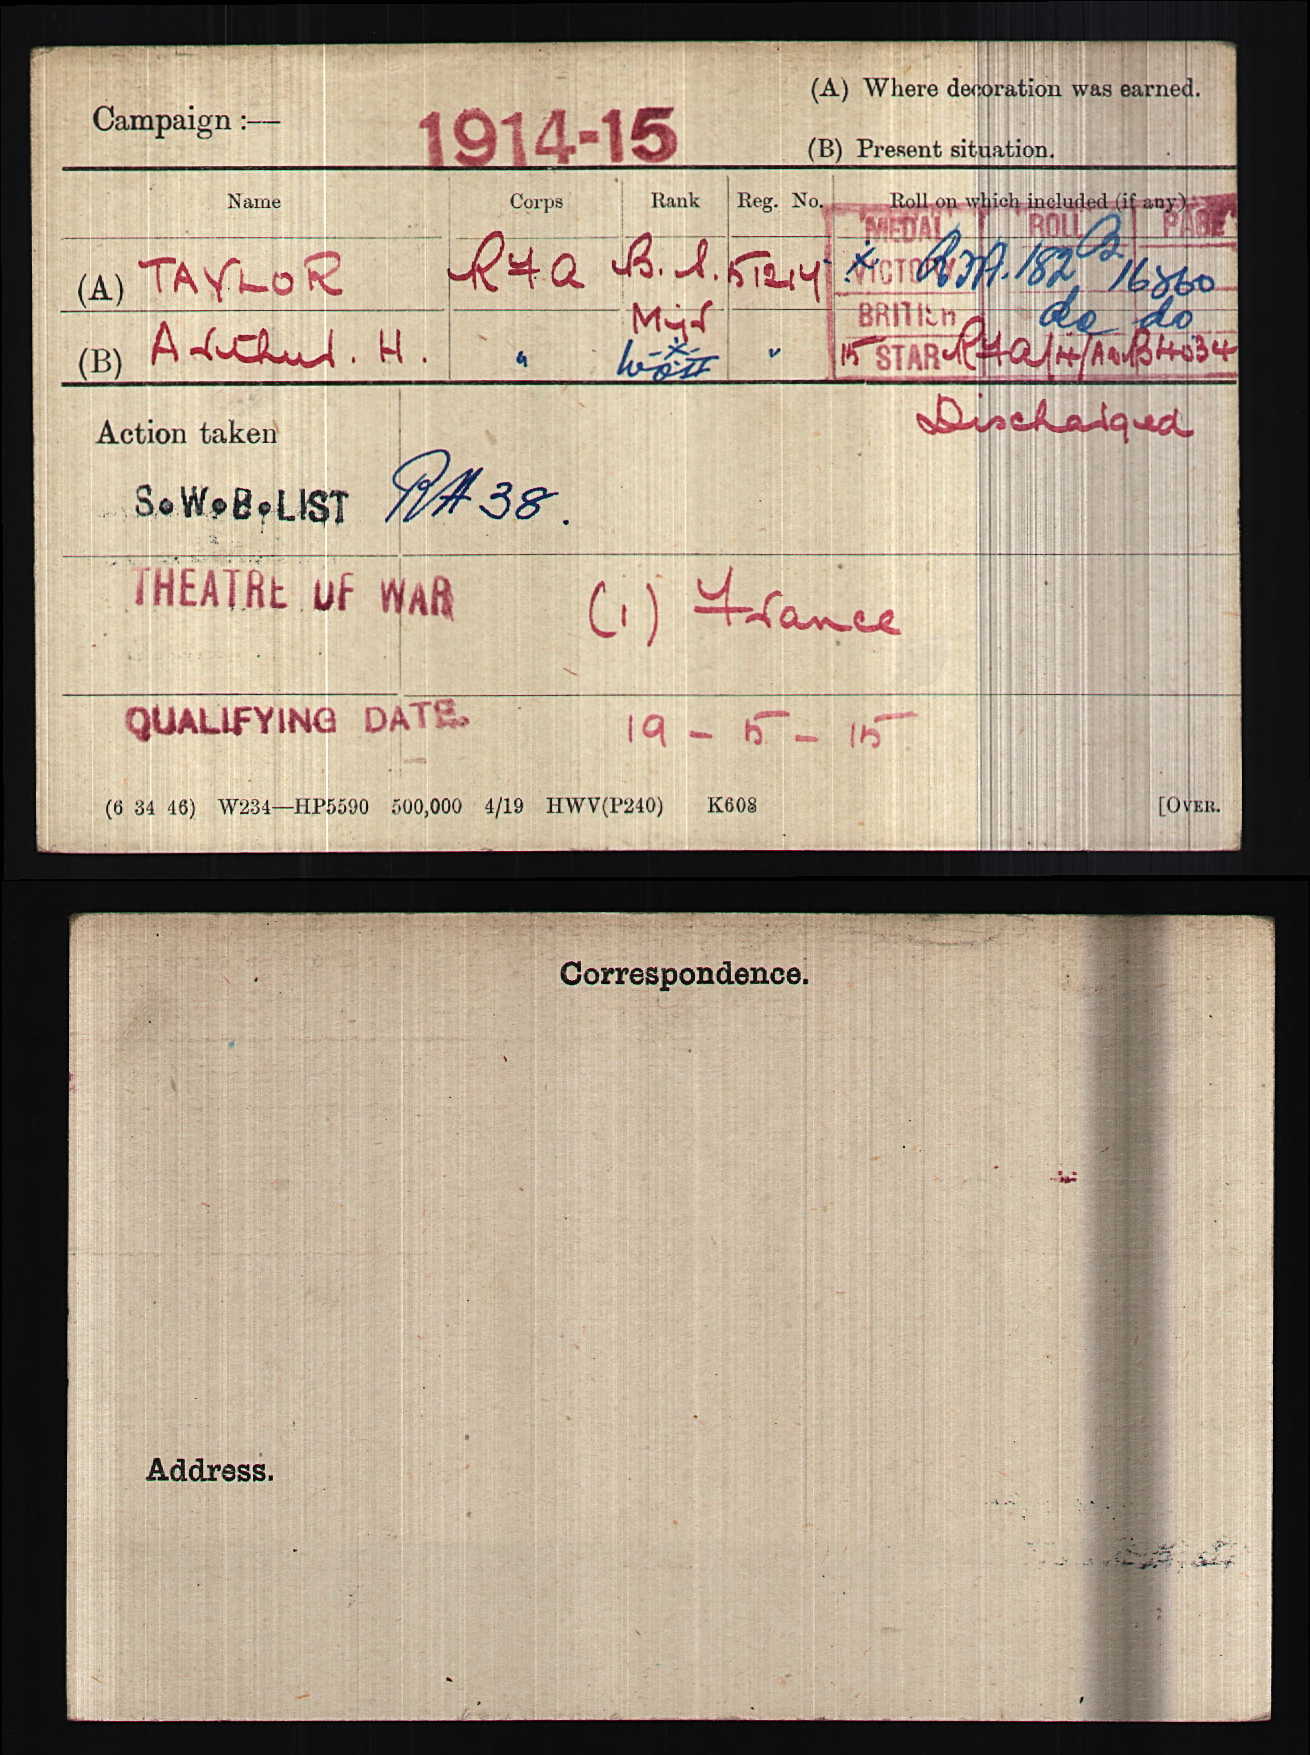 Campaign :— 1914-15
(A) Where decoration was earned.
(B) Present situation.
Name Corps Rank Reg. No. Roll on which included (if any)
MEDAL ROLL PAGE
(A) TAYLOR R F A B. S. 51214 X VICTORY RFA. 182 B 16860
Mjr BRITISH do do
(B) Arthur. H. " -X- W.O.II " 15 STAR RFA/14/ B4034
Discharged
Action taken
S.W.B. LIST RA 38.
THEATRE OF WAR (1) France
QUALIFYING DATE. 19 - 5 - 15
(6 34 46) W234—HP5590 500,000 4/19 HWV(P240) K608 [OVER.
Correspondence.
Address.